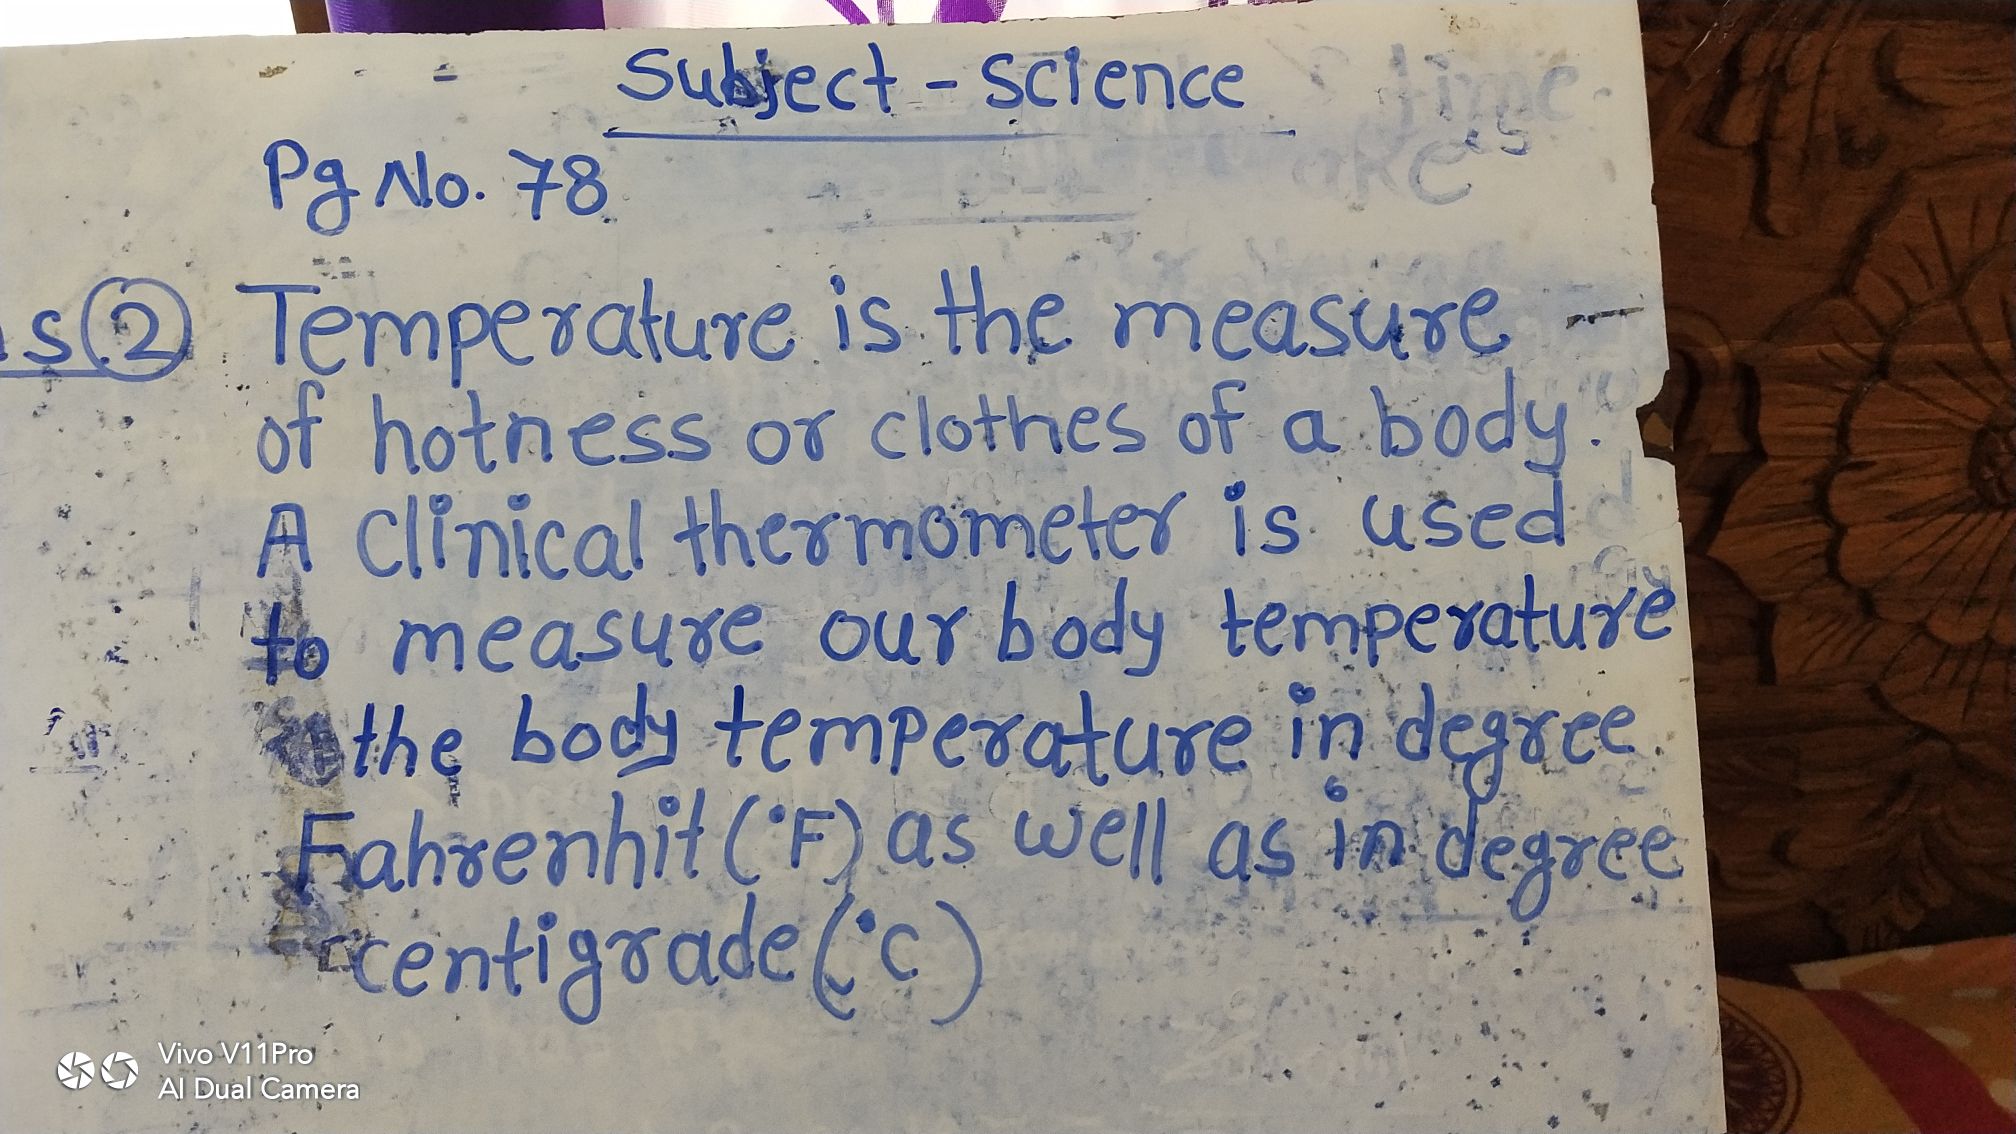 Subject - Science
Pg No. 78
s 2 Temperature is the measure
of hotness or clothes of a body.
A clinical thermometer is used
to measure our body temperature
the body temperature in degree
Fahrenhit (°F) as well as in degree
centigrade (°C)
Vivo V11Pro
AI Dual Camera